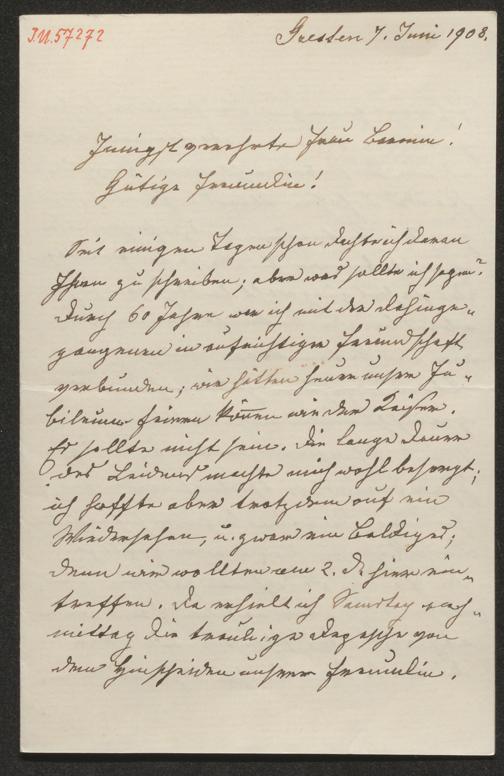 I.N.57272
Gresten 7. Juni 1908.
Innigst verehrte Frau Baronin!
Gütige Freundin!
Seit einigen Tagen schon dachte ich daran
Ihnen zu schreiben; aber was sollte ich sagen?
Durch 60 Jahre war ich mit der Dahinge-
gangenen in aufrichtiger Freundschaft
verbunden; wir hätten heuer unser Ju-
biläum feiern können wie der Kaiser.
Es sollte nicht sein. Die lange Dauer
des Leidens machte mich wohl besorgt;
ich hoffte aber trotzdem auf ein
Wiedersehen, u. zwar ein baldiges;
denn wir wollten am 2. d. hier ein-
treffen. Da erhielt ich Samstag nach-
mittag die traurige Depesche von
dem Hinscheiden unserer Freundin.